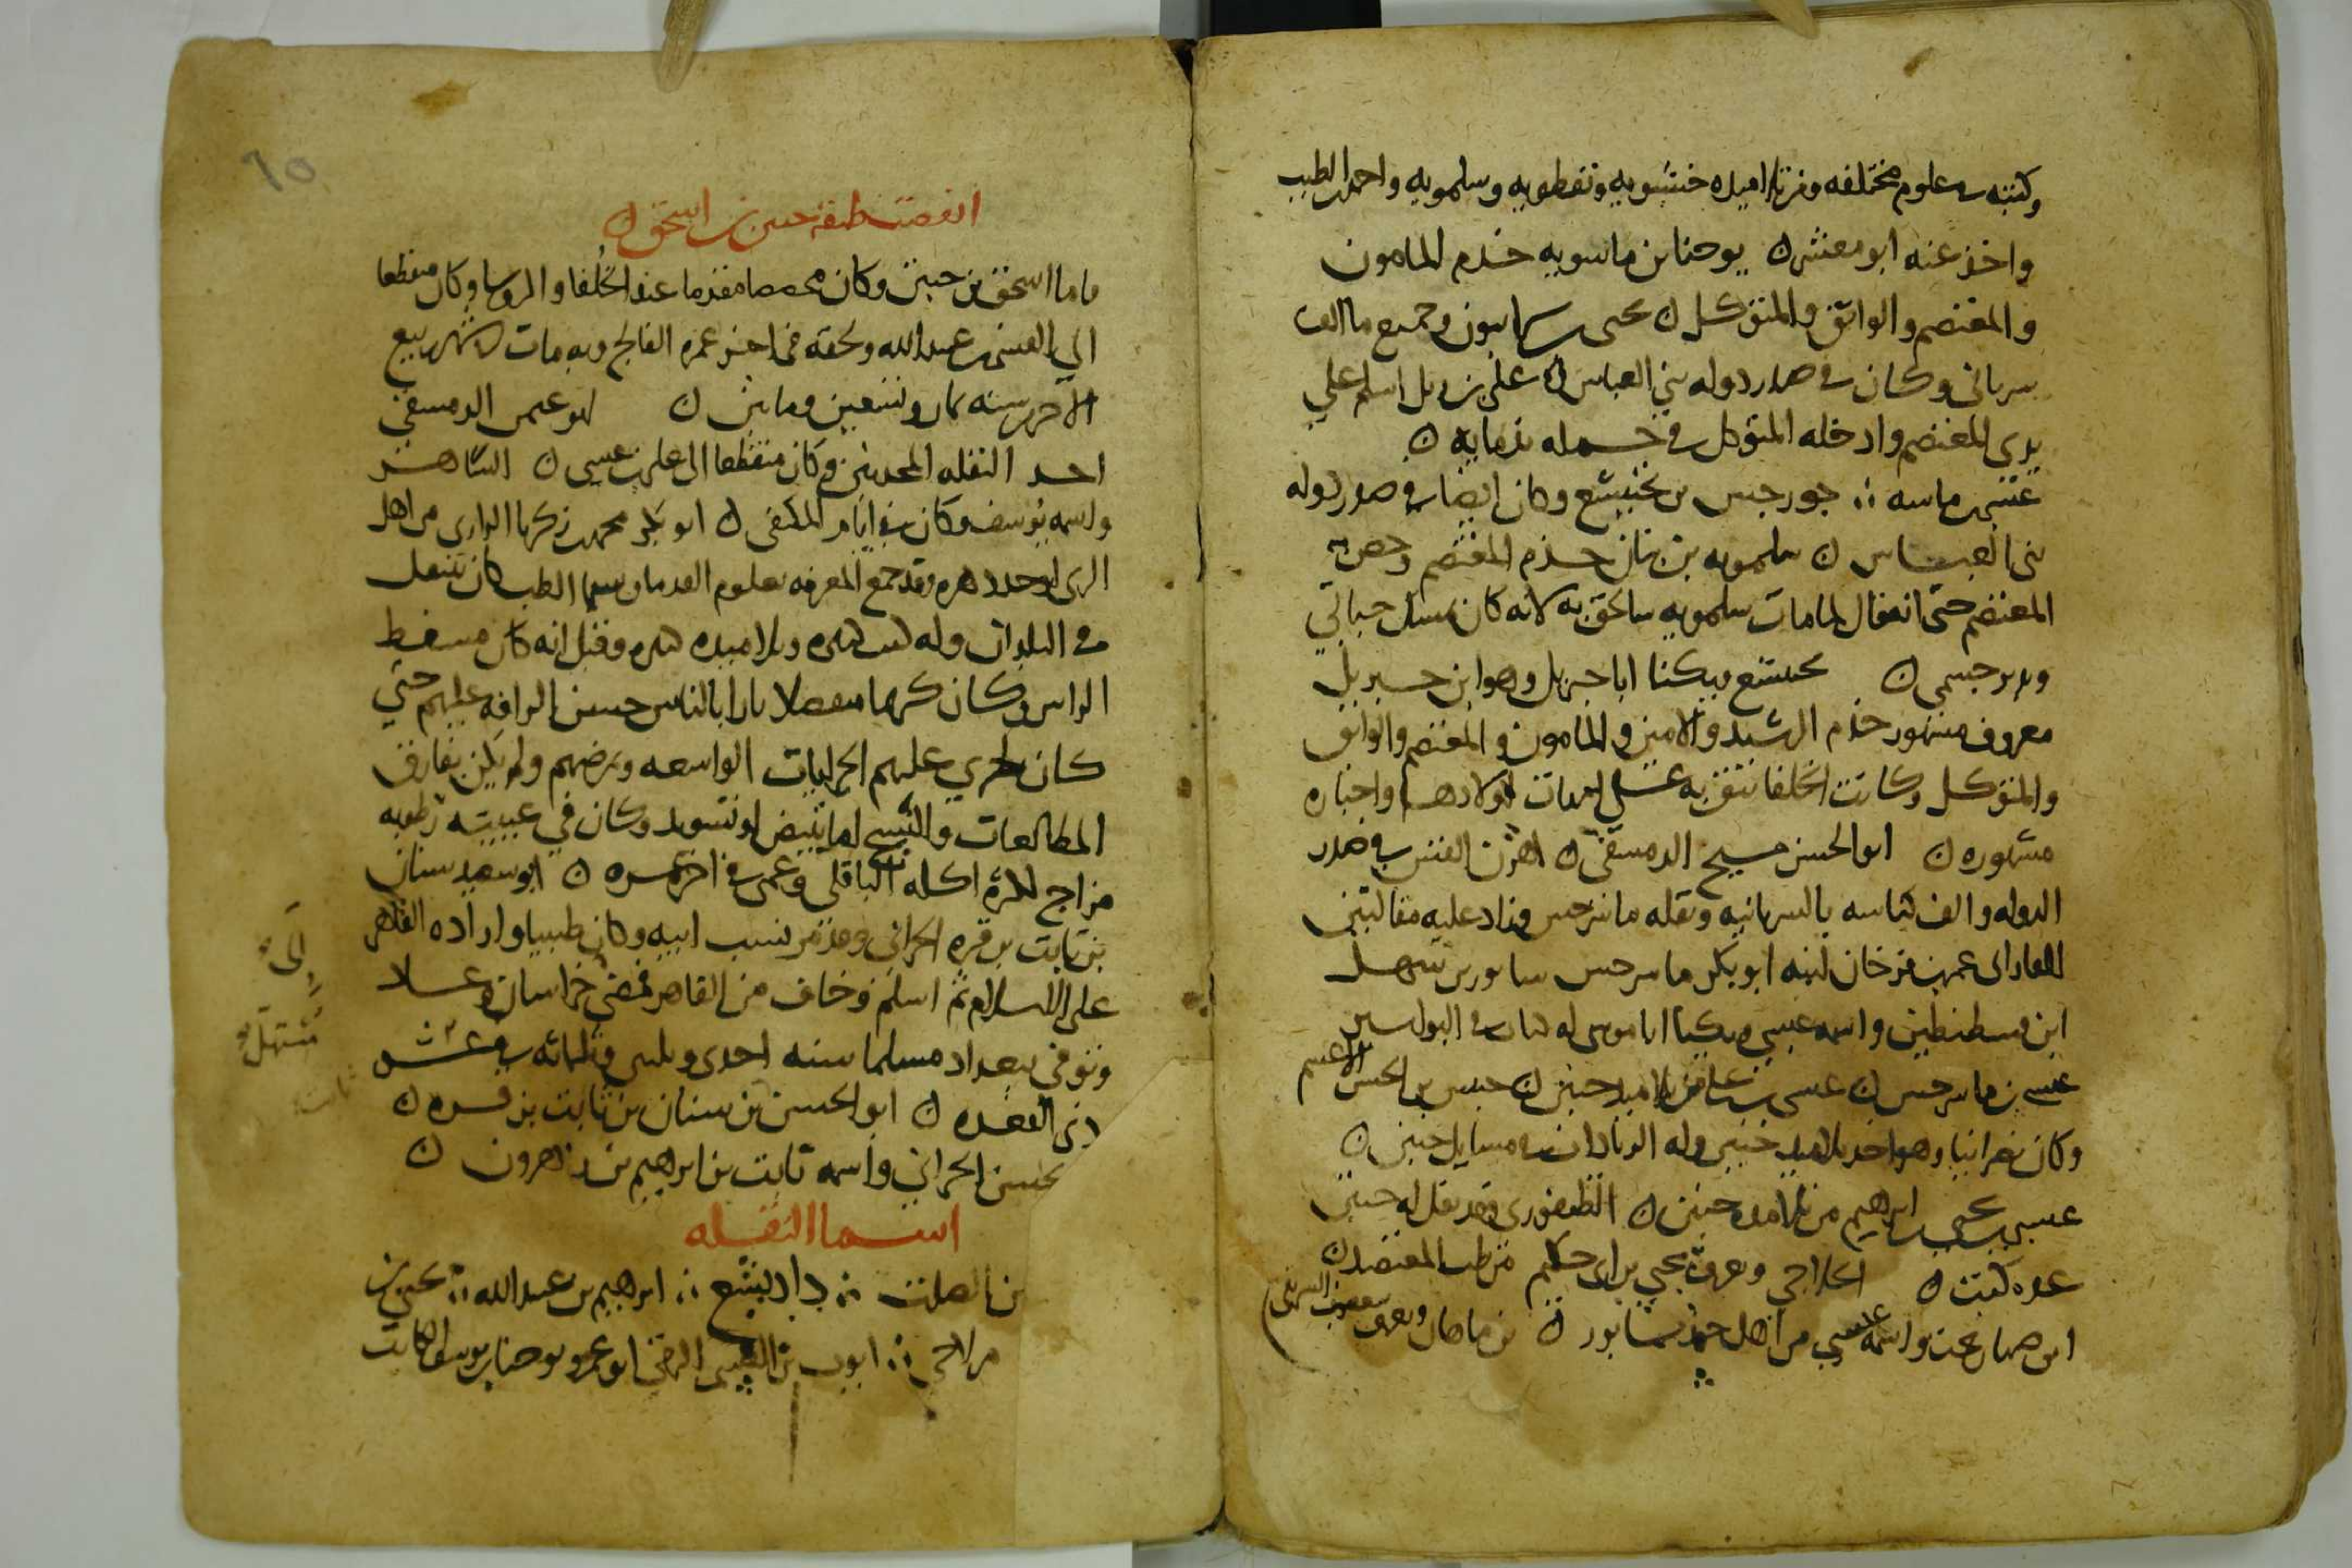 وكتبه في علوم مختلفه ومن تلاميذه حسنويه ونفطويه وسلمويه واحمد بن الطيب
واخذ عنه ابو معشر ن يوحنا بن ماسويه خدم المامون
والمعتصم والواثق والمتوكل ن يحيى بن سرابيون وجميع ما الف
سرياني وكان في صدر دوله بني العباس ن علي بن ربل اسلم على
يدي المعتصم وادخله المتوكل في جمله ندمايه ن
عيسى بن ماسه ؞ جورجس بن بختيشع وكان ايضا في صدر دوله
بني العباس ن سلمويه بن بنان خدم المعتصم وخص به
المعتصم حتى انه قال لما مات سلمويه سالحق به لانه كان يمسك حياتي
ويدبر جسمي ن بختيشع ويكنا ابا جبريل وهو ابن جبريل
معروف مشهور خدم الرشيد والامين والمامون والمعتصم والواثق
والمتوكل وكانت الخلفا تثق به على امهات اولادها واخباره
مشهوره ن ابو الحسن مسيح الدمشقي ن اهرن القس في صدر
الدوله والف كناشه بالسريانيه ونقله ماسرجس وزاد عليه مقالتين
عمر بن فرخان ابو بكر ماسرجس سابور بن سهل
ابن قسطنطين واسمه عيسى ويكنا ابا موسى له كتاب في البواسير
عيسى بن ماسرجس ن عيسى بن علي من تلاميذ حنين ن حبيش بن الحسن الاعسم
وكان نصرانيا وهو احد تلاميذ حنين وله الزيادات في مسايل حنين ن
عيسى بن يحيى بن ابرهيم من تلامذه حنين ن الطيفوري وقد نقل له حنين
عده كتب ن الحلاجي ويعرف بيحيى بن ابي حكيم من طب المعتضد ن
ابن صهاربخت واسمه عيسى من اهل جندشابور ن بن ماهان ويعرف بيعقوب السيرافي
اسحق بن حنين بن اسحق ن
فاما اسحق بن حنين وكان مقدما عند الخلفا والروسا وكان منقطعا
الى القسم بن عبيد الله ولحقه في اخر عمره الفالج وبه مات في شهر ربيع
الاخر سنه ثمان وتسعين ومايتين ن ابو عثمن الدمشقي
احد النقله المجيدين وكان منقطعا الى علي بن عيسى ن الساهر
واسمه يوسف وكان في ايام المكتفي ن ابو بكر محمد بن زكريا الرازي من اهل
الري اوحد دهره وقد جمع المعرفه بعلوم القدما وسيما الطب كان يتنقل
في البلدان وله كتب كثيره وتلاميذه كثيره وقيل انه كان مسفط
الراس وكان كريما متفضلا بارا بالناس حسن الرافه عليهم حتى
كان يجري عليهم الجرايات الواسعه ويمرضهم ولم يكن يفارق
المطالعات والنسخ اما يبيض او يسود وكان في عينيه رطوبه
مزاج لكثره اكله الباقلى وعمي في اخر عمره ن ابو سعيد سنان
بن ثابت بن قره الحراني وقد مر نسب ابيه وكان طبيبا واراده القاهر
على الاسلام ثم اسلم وخاف من القاهر فمضى خراسان وعاد
وتوفي ببغداد مسلما سنه احدى وثلثين وثلثمائه في
ذي القعده ن ابو الحسن بن سنان بن ثابت بن قره ن
الحسن الحراني واسمه ثابت بن ابرهيم بن زهرون ن
اسما النقله
بن الصلت ؞ داديشع ؞ ابرهيم بن عبد الله ؞ يحيى بن
؞ ايوب بن القسم الرقي ابو عمرو يوحنا بن يوسف الكاتب
الى
مستهل